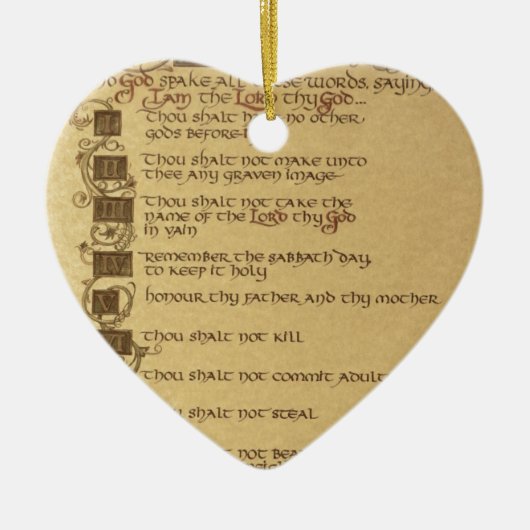 God spake all these words, saying
I am the Lord thy God...
I Thou shalt no other
gods before
II Thou shalt not make unto
thee any graven image
III Thou shalt not take the
name of the Lord thy God
in vain
IV Remember the Sabbath day,
to keep it holy
V honour thy father and thy mother
VI Thou shalt not kill
Thou shalt not commit adult
shalt not steal
not bea